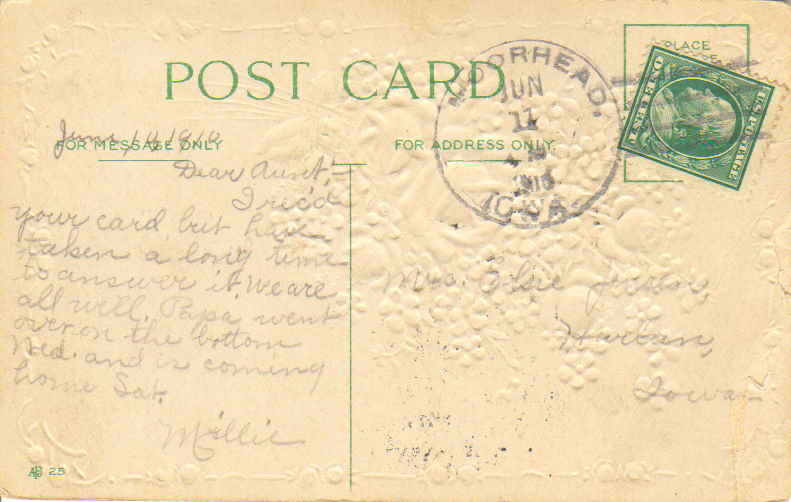 POST CARD
PLACE
MOORHEAD,
JUN
11
IOWA
U.S. POSTAGE
June 10 1910
FOR MESSAGE ONLY
FOR ADDRESS ONLY.
Dear Aunt,–
I rec'd
your card but have
taken a long time
to answer it. We are
all well. Papa went
over on the bottom
Wed. and is coming
home Sat.
Millie
Mrs. Elsie
Harlan,
Iowa
25